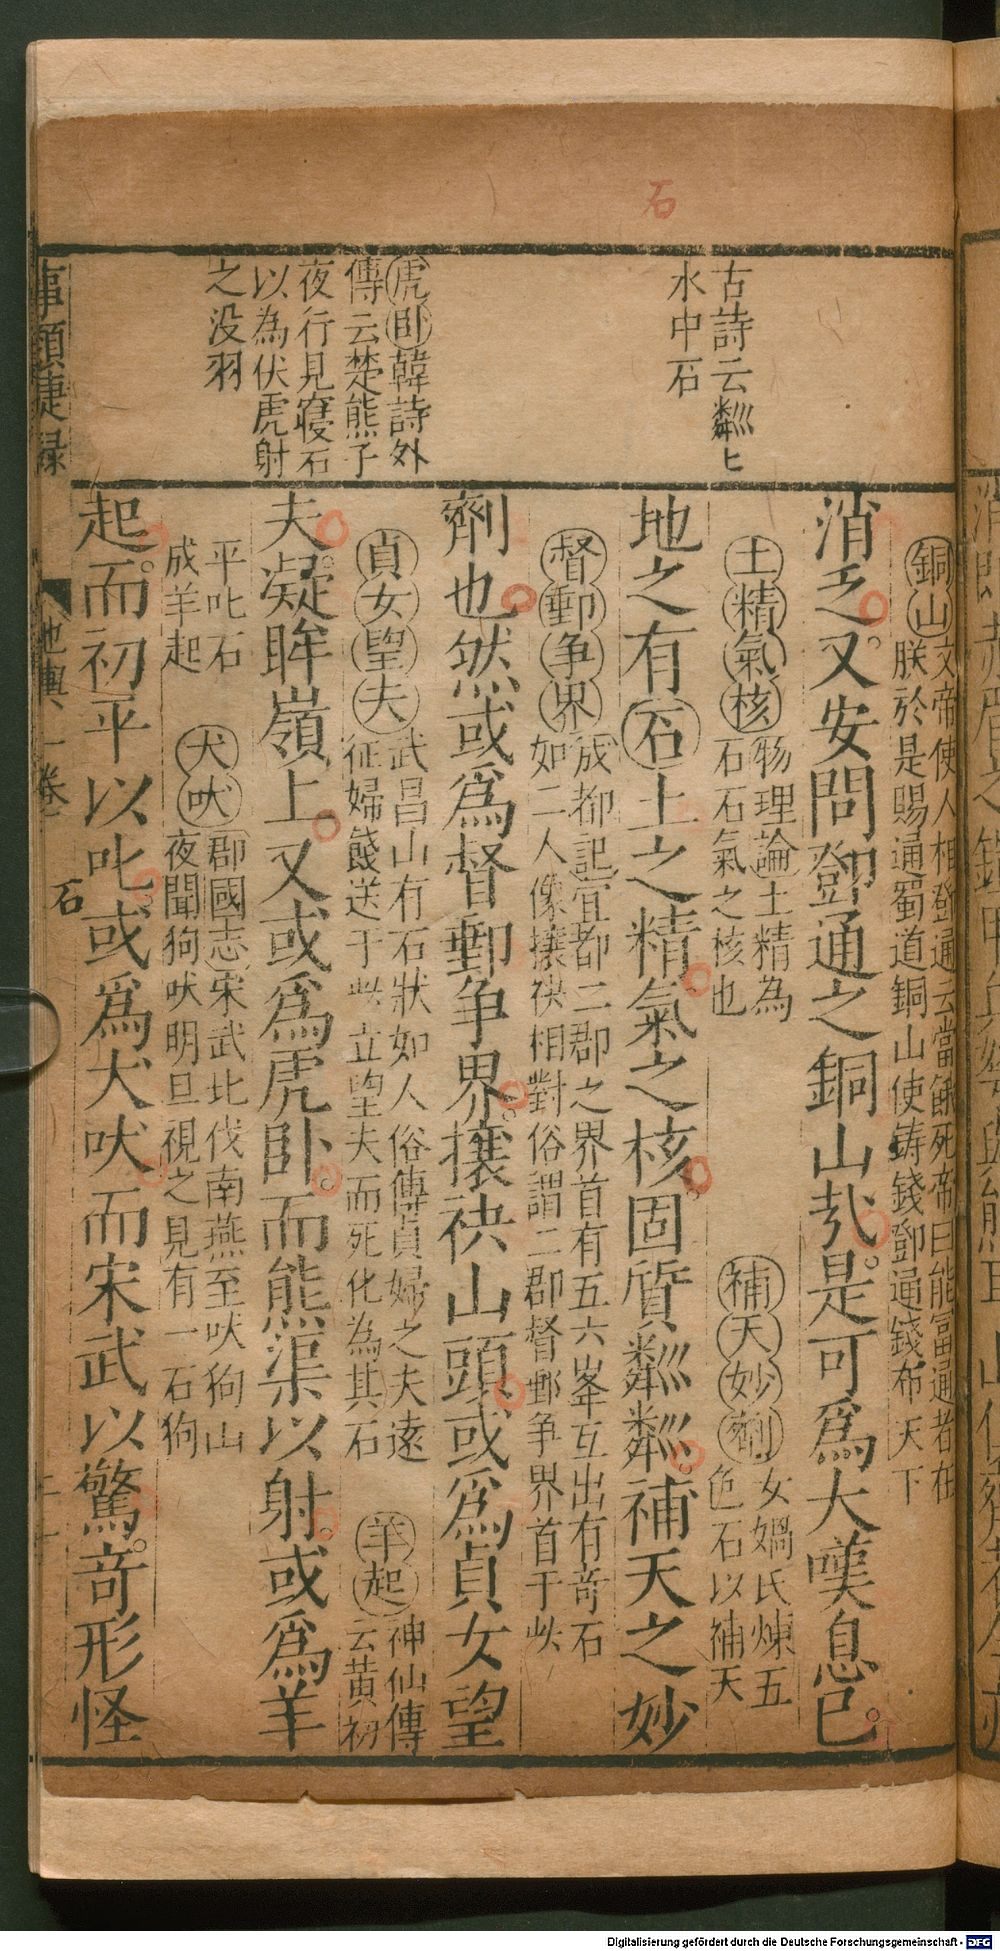 石
古詩云粼〻
水中石
虎卧韓詩外
傳云楚熊子
夜行見寑石
以為伏虎射
之没羽
消乏。又安問鄧通之銅山㢤。是可爲大嘆息已。
銅山文帝使人相鄧通云當餓死帝曰能富通者在
朕於是賜通蜀道銅山使鋳錢鄧通錢布天下
土精氣核物理論土精為
石石氣之核也
補天妙劑女媧氏煉五
色石以補天
地之有石土之精氣之核。固質粼粼。補天之妙
督郵争界成都記宜都二郡之界首有五六峯互出有奇石
如二人像攘袂相對俗謂二郡督郵争界首于此
劑也。然或爲督郵争界。攘袂山頭。或爲貞女望
貞女望夫武昌山有石狀如人俗傳貞婦之夫遠
征婦餞送于此立望夫而死化為其石
羊起神仙傳
云黄初
夫。凝眸嶺上。又或爲虎卧。而熊渠以射。或爲羊
平叱石
成羊起
犬吠郡國志宋武北伐南燕至吠狗山
夜聞狗吠明旦視之見有一石狗
起。而初平以叱。或爲犬吠。而宋武以驚。奇形怪
事類捷録
地輿一卷
石
Digitalisierung gefördert durch die Deutsche Forschungsgemeinschaft - DFG